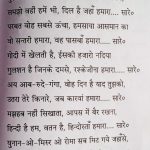 समझो वहीं हमें भी, दिल है जहाँ हमारा.... सारे०
परबत वोह सबसे ऊंचा, हमसाया आसमान का
वो सन्तरी हमारा, वह पासबां हमारा..... सारे०
गोदी में खेलती है, इसकी हजारों नदिया
गुलशन है जिनके दमसे, रश्केजीना हमारा.... सारे०
अय आब-रुदे-गंगा, वोह दिन है याद तुझको,
उतरा तेरे किनारे, जब कारवाँ हमारा.... सारे०
मझहब नहीं सिखाता, आपस में बैर रखना,
हिन्दी है हम, वतन है, हिन्दोस्तां हमारा.... सारे०
युनान-ओ-मिसर ओ रोमा सब मिट गये जहाँसे,